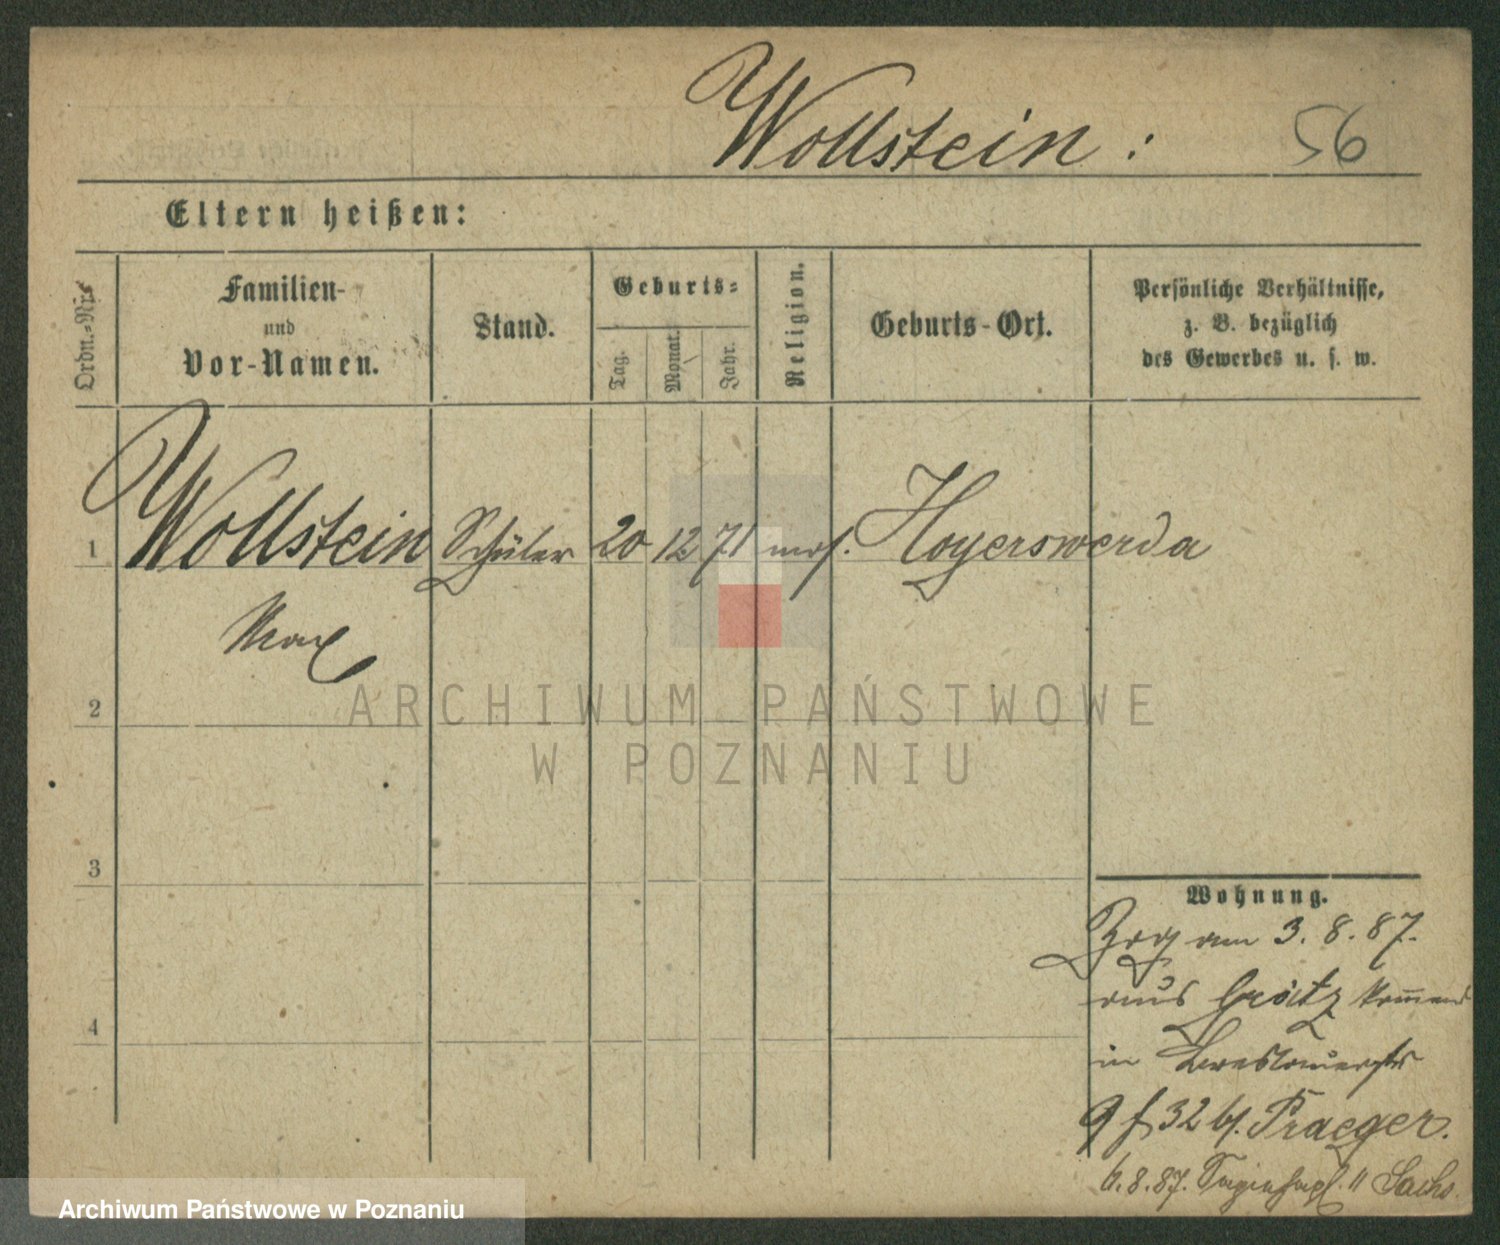 Wollstein: 56
Eltern heißen:
Ordn.-Nr.
Familien-
und
Vor-Namen.
Stand.
Geburts-
Tag.
Monat.
Jahr.
Religion.
Geburts-Ort.
Persönliche Verhältnisse,
z. B. bezüglich
des Gewerbes u. s. w.
1 Wollstein Schüler 20 12 71 mos. Hoyerswerda
Max
2
3
4
Wohnung.
Zog am 3. 8. 87.
aus Grätz kommend
in
32 bei Praeger.
6.8.87. 11 Sachs
ARCHIWUM PAŃSTWOWE
W POZNANIU
Archiwum Państwowe w Poznaniu